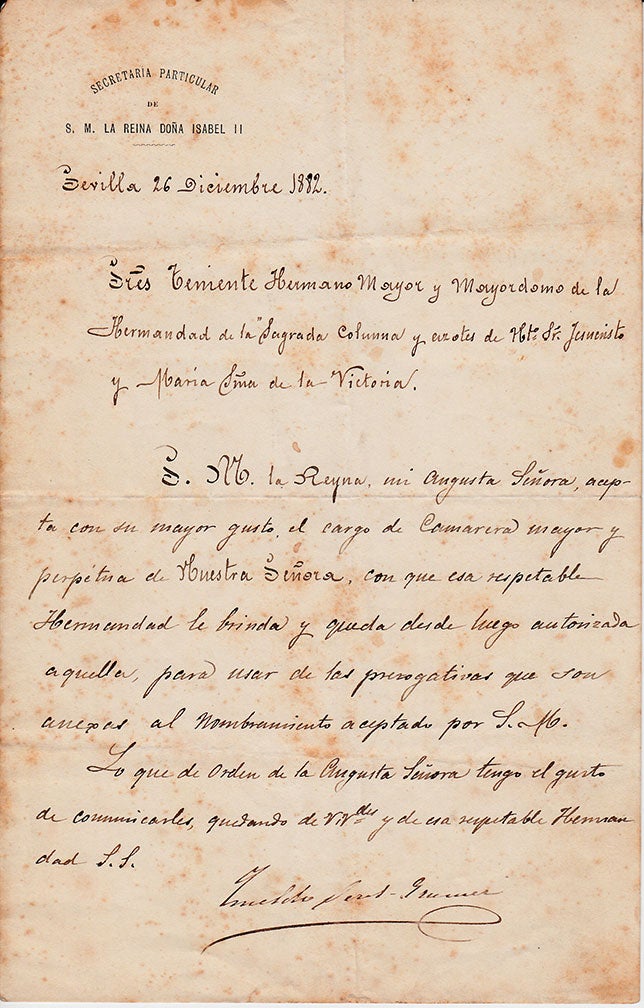 SECRETARIA PARTICULAR
DE
S. M. LA REINA DOÑA ISABEL II
Sevilla 26 Diciembre 1882.
Sres Teniente Hermano Mayor y Mayordomo de la
Hermandad de la "Sagrada Columna y azotes de Ntro Sr. Jesucristo
y María Sma de la Victoria.
S. M. la Reyna, mi Augusta Señora, acep-
ta con su mayor gusto, el cargo de Camarera mayor y
perpétua de Nuestra Señora, con que esa respetable
Hermandad le brinda y queda desde luego autorizada
aquella, para usar de las prerogativas que son
anexas al Nombramiento aceptado por S. M.
Lo que de Orden de la Augusta Señora tengo el gusto
de comunicarles, quedando de V.V.des y de esa respetable Herman
dad S. S.